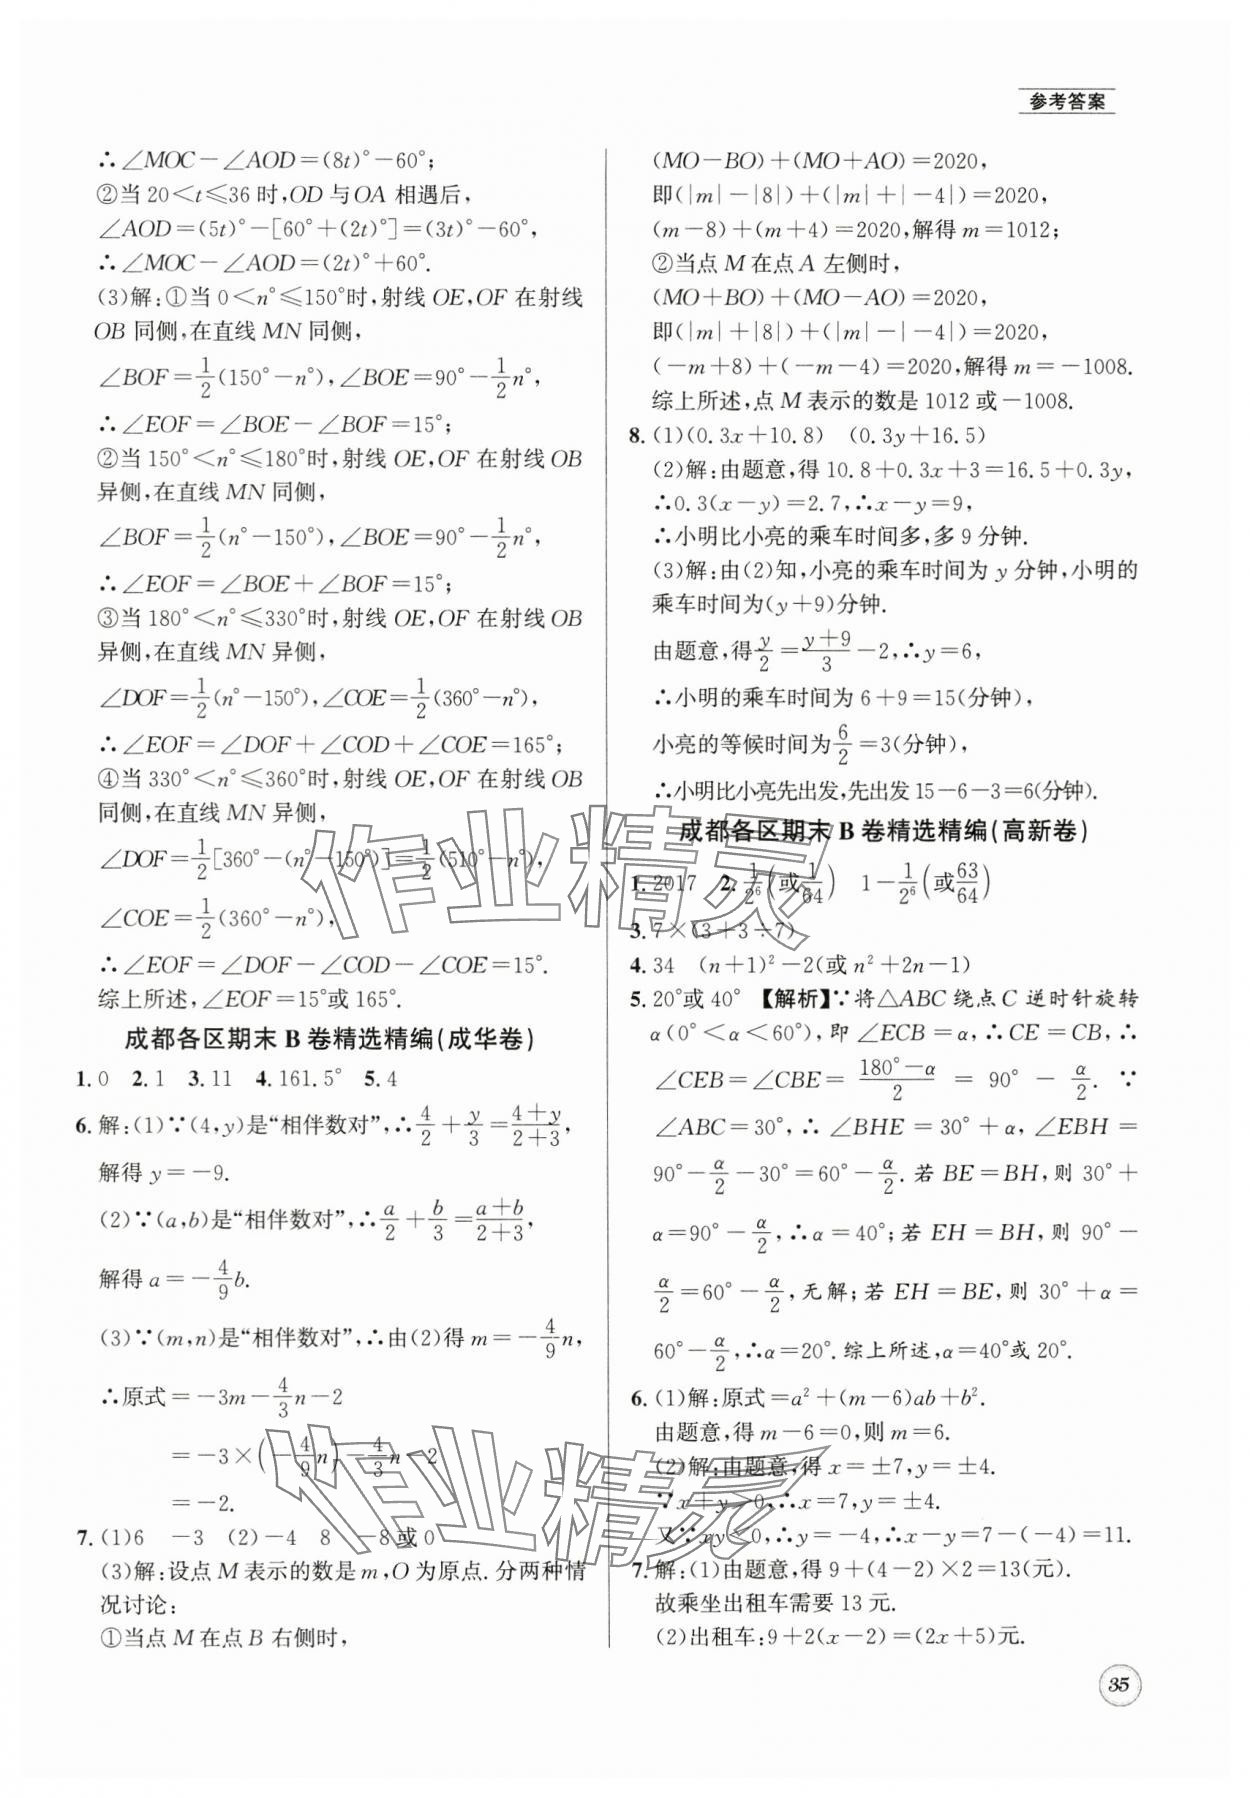 参考答案
∴∠MOC－∠AOD＝(8t)°－60°；
②当 20＜t≤36 时，OD 与 OA 相遇后，
∠AOD＝(5t)°－[60°＋(2t)°]＝(3t)°－60°，
∴∠MOC－∠AOD＝(2t)°＋60°.
(3)解：①当 0＜n°≤150°时，射线 OE，OF 在射线
OB 同侧，在直线 MN 同侧，
∠BOF＝1/2(150°－n°)，∠BOE＝90°－1/2n°，
∴∠EOF＝∠BOE－∠BOF＝15°；
②当 150°＜n°≤180°时，射线 OE，OF 在射线 OB
异侧，在直线 MN 同侧，
∠BOF＝1/2(n°－150°)，∠BOE＝90°－1/2n°，
∴∠EOF＝∠BOE＋∠BOF＝15°；
③当 180°＜n°≤330°时，射线 OE，OF 在射线 OB
异侧，在直线 MN 异侧，
∠DOF＝1/2(n°－150°)，∠COE＝1/2(360°－n°)，
∴∠EOF＝∠DOF＋∠COD＋∠COE＝165°；
④当 330°＜n°≤360°时，射线 OE，OF 在射线 OB
同侧，在直线 MN 异侧，
∠DOF＝1/2[360°－(n°－150°)]＝1/2(510°－n°)，
∠COE＝1/2(360°－n°)，
∴∠EOF＝∠DOF－∠COD－∠COE＝15°.
综上所述，∠EOF＝15°或 165°.
成都各区期末 B 卷精选精编(成华卷)
1.0 2.1 3.11 4.161.5° 5.4
6.解：(1)∵(4,y)是“相伴数对”，∴4/2＋y/3＝(4＋y)/(2＋3)，
解得 y＝－9.
(2)∵(a,b)是“相伴数对”，∴a/2＋b/3＝(a＋b)/(2＋3)，
解得 a＝－4/9b.
(3)∵(m,n)是“相伴数对”，∴由(2)得 m＝－4/9n，
∴原式＝－3m－4/3n－2
＝－3×(－4/9n)－4/3n－2
＝－2.
7.(1)6 －3 (2)－4 8 －8或 0
(3)解：设点 M 表示的数是 m，O 为原点.分两种情
况讨论：
①当点 M 在点 B 右侧时，
(MO－BO)＋(MO＋AO)＝2020，
即(|m|－|8|)＋(|m|＋|－4|)＝2020，
(m－8)＋(m＋4)＝2020，解得 m＝1012；
②当点 M 在点 A 左侧时，
(MO＋BO)＋(MO－AO)＝2020，
即(|m|＋|8|)＋(|m|－|－4|)＝2020，
(－m＋8)＋(－m－4)＝2020，解得 m＝－1008.
综上所述，点 M 表示的数是 1012 或－1008.
8.(1)(0.3x＋10.8) (0.3y＋16.5)
(2)解：由题意，得 10.8＋0.3x＋3＝16.5＋0.3y，
∴0.3(x－y)＝2.7，∴x－y＝9，
∴小明比小亮的乘车时间多，多 9 分钟.
(3)解：由(2)知，小亮的乘车时间为 y 分钟，小明的
乘车时间为(y＋9)分钟.
由题意，得y/2＝(y＋9)/3－2，∴y＝6，
∴小明的乘车时间为 6＋9＝15(分钟)，
小亮的等候时间为6/2＝3(分钟)，
∴小明比小亮先出发，先出发 15－6－3＝6(分钟).
成都各区期末 B 卷精选精编(高新卷)
1.2017 2.1/2⁶(或1/64) 1－1/2⁶(或63/64)
3.7×(3＋3÷7)
4.34 (n＋1)²－2(或 n²＋2n－1)
5.20°或 40° 【解析】∵将△ABC 绕点 C 逆时针旋转
α(0°＜α＜60°)，即 ∠ECB＝α，∴CE＝CB，∴
∠CEB＝∠CBE＝(180°－α)/2＝90°－α/2. ∵
∠ABC＝30°，∴∠BHE＝30°＋α，∠EBH＝
90°－α/2－30°＝60°－α/2.若 BE＝BH，则 30°＋
α＝90°－α/2，∴α＝40°；若 EH＝BH，则 90°－
α/2＝60°－α/2，无解；若 EH＝BE，则 30°＋α＝
60°－α/2，∴α＝20°.综上所述，α＝40°或 20°.
6.(1)解：原式＝a²＋(m－6)ab＋b².
由题意，得 m－6＝0，则 m＝6.
(2)解：由题意，得 x＝±7，y＝±4.
∵x＋y＞0，∴x＝7，y＝±4.
又∵xy＜0，∴y＝－4，∴x－y＝7－(－4)＝11.
7.解：(1)由题意，得 9＋(4－2)×2＝13(元).
故乘坐出租车需要 13 元.
(2)出租车：9＋2(x－2)＝(2x＋5)元.
35
作业精灵
作业精灵